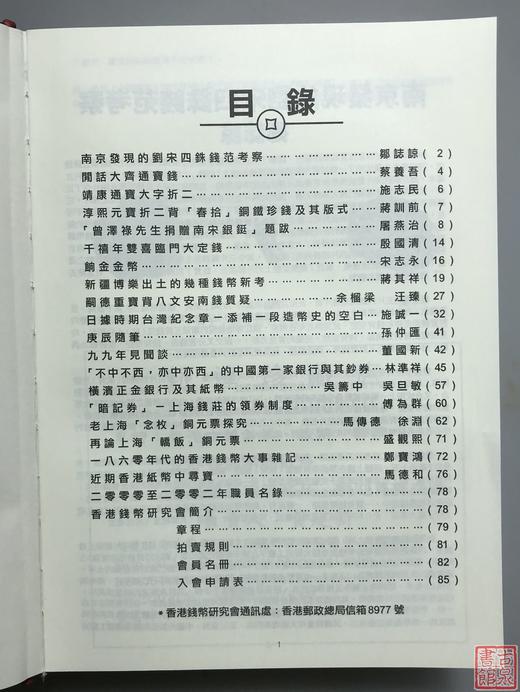 目錄
南京發現的劉宋四銖錢范考察………………………鄒誌諒(2)
閒話大齊通寶錢………………………蔡養吾(4)
靖康通寶大字折二………………………施志民(6)
淳熙元寶折二背「春拾」銅鐵珍錢及其版式………蔣訓前(7)
「曾澤祿先生捐贈南宋銀鋌」題跋………………屠燕治(8)
千禧年雙喜臨門大定錢………………………殷國清(14)
餉金金幣………………………宋志永(16)
新疆博樂出土的幾種錢幣新考………………………蔣其祥(19)
嗣德重寶背八文安南錢質疑………………余榴梁 汪臻(27)
日據時期台灣紀念章－添補一段造幣史的空白…施誠一(32)
庚辰隨筆………………………孫仲匯(41)
九九年見聞談………………………董國新(42)
「不中不西，亦中亦西」的中國第一家銀行與其鈔券…林準祥(45)
橫濱正金銀行及其紙幣………………吳籌中 吳旦敏(57)
「暗記券」－上海錢莊的領券制度………………傅為群(60)
老上海「念枚」銅元票探究………………馬傳德 徐淵(62)
再論上海「轎飯」銅元票………………………盛觀熙(71)
一八六零年代的香港錢幣大事雜記………………鄭寶鴻(72)
近期香港紙幣中尋寶………………………馬德和(76)
二零零零至二零零二年職員名錄………………………(78)
香港錢幣研究會簡介………………………(78)
章程………………………(79)
拍賣規則………………………(81)
會員名冊………………………(82)
入會申請表………………………(85)
*香港錢幣研究會通訊處：香港郵政總局信箱8977號
1
古泉書館